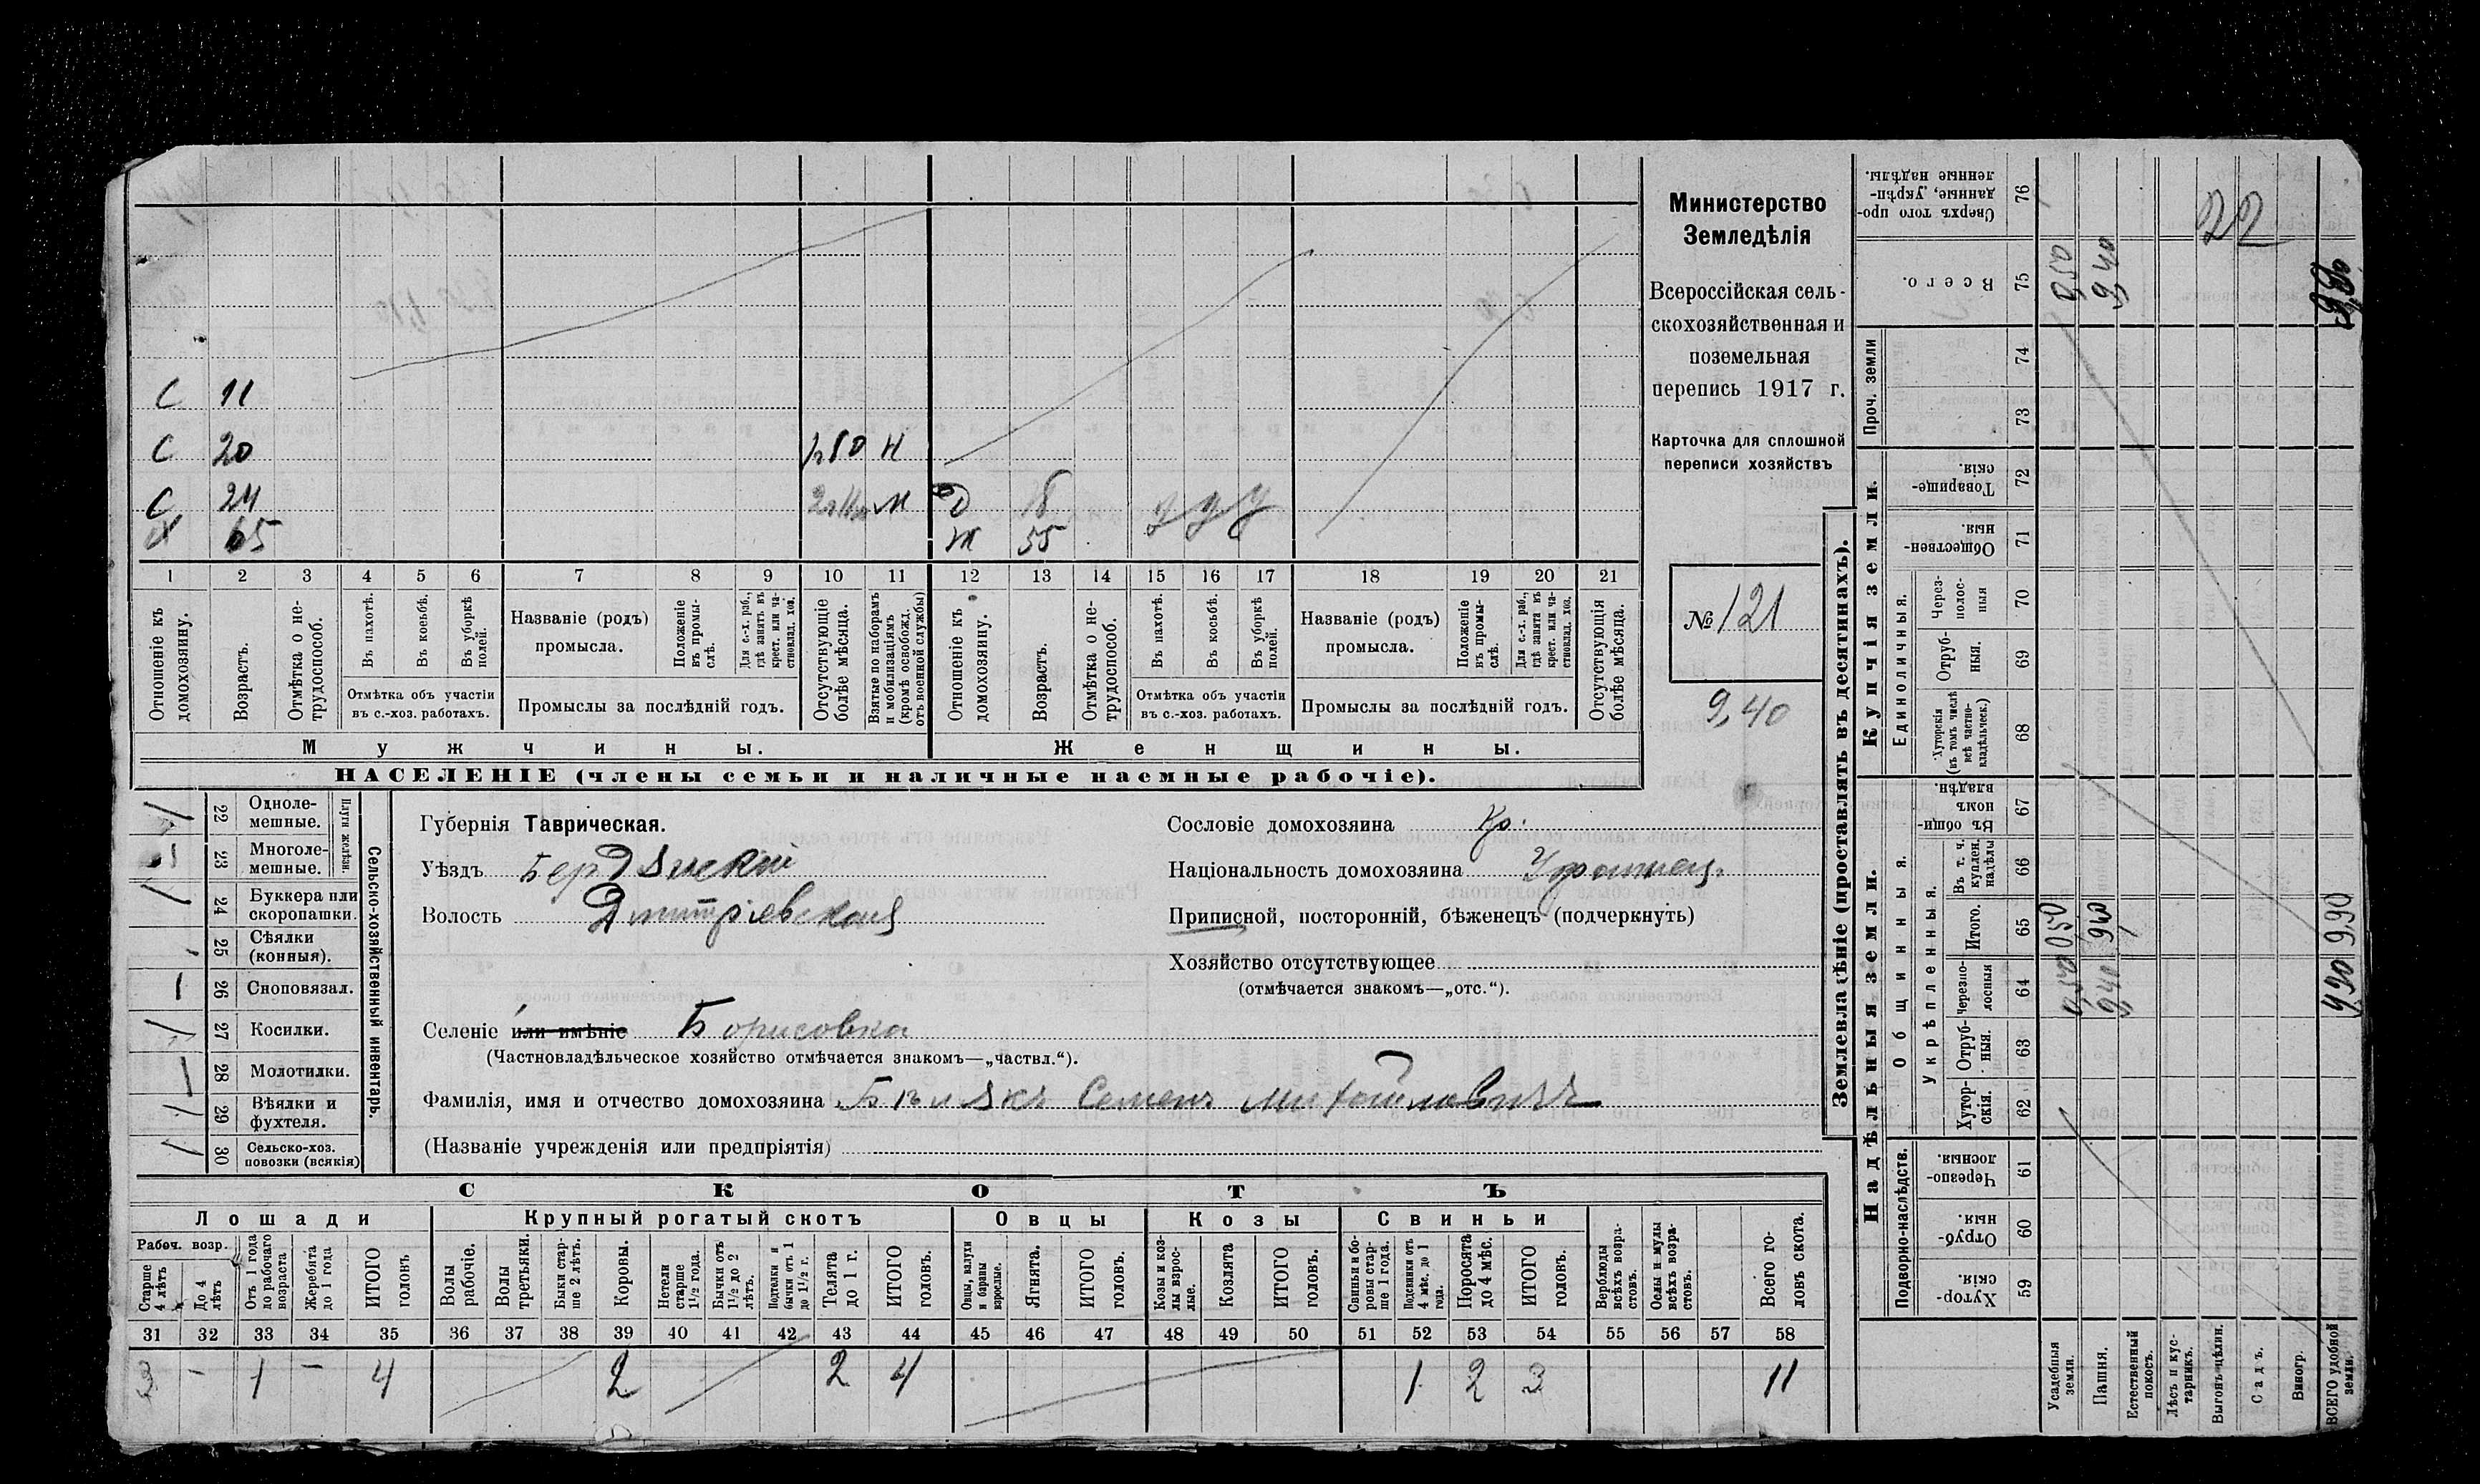 С 11
С 20 Н
С 24 М Д 18 У У У
Х 65 Ж 55
1 2 3 4 5 6 7 8 9 10 11 12 13 14 15 16 17 18 19 20 21
Отношеніе къ домохозяину.
Возрастъ.
Отмѣтка о не-
трудоспособ.
Въ пахотѣ.
Въ косьбѣ.
Въ уборкѣ полей.
Отмѣтка объ участіи
въ с.-хоз. работахъ.
Названіе (родъ)
промысла.
Положеніе въ промы-
слѣ.
Для с.-х. раб., гдѣ занятъ въ крест. или ча-
стновлад. хоз.
Промыслы за послѣдній годъ.
Отсутствующіе болѣе мѣсяца.
Взятые по наборамъ и мобилизаціямъ (кромѣ освобожд. отъ военной службы)
Отношеніе къ домохозяину.
Возрастъ.
Отмѣтка о не-
трудоспособ.
Въ пахотѣ.
Въ косьбѣ.
Въ уборкѣ полей.
Отмѣтка объ участіи
въ с.-хоз. работахъ.
Названіе (родъ)
промысла.
Положеніе въ промы-
слѣ.
Для с.-х. раб., гдѣ занята въ крест. или ча-
стновлад. хоз.
Промыслы за послѣдній годъ.
Отсутствующія болѣе мѣсяца.
Мужчины.
Женщины.
НАСЕЛЕНІЕ (члены семьи и наличные наемные рабочіе).
Министерство
Земледѣлія
Всероссійская сель-
скохозяйственная и
поземельная
перепись 1917 г.
Карточка для сплошной
переписи хозяйствъ
№ 121
9,40
22 Одноле-
мешные.
23 Многоле-
мешные.
Плуги желѣзн.
24 Буккера или
скоропашки.
25 Сѣялки
(конныя).
26 Сноповязал.
27 Косилки.
28 Молотилки.
29 Вѣялки и
фухтеля.
30 Сельско-хоз.
повозки (всякія)
Сельско-хозяйственный инвентарь.
Губернія Таврическая.
Уѣздъ Бердянскій
Волость Дмитріевская
Селеніе или имѣніе Борисовка
(Частновладѣльческое хозяйство отмѣчается знакомъ—„частвл.“).
Фамилія, имя и отчество домохозяина Бѣлякъ Семенъ Михайловичъ
(Названіе учрежденія или предпріятія)
Сословіе домохозяина Кр.
Національность домохозяина
Приписной, посторонній, бѣженецъ (подчеркнуть)
Хозяйство отсутствующее
(отмѣчается знакомъ—„отс.“).
СКОТЪ
Лошади
Крупный рогатый скотъ
Овцы
Козы
Свиньи
Рабоч. возр.
Старше 4 лѣтъ
До 4 лѣтъ
Отъ 1 года до рабочаго возраста
Жеребята до 1 года
ИТОГО головъ
Волы рабочіе.
Волы третьяки.
Быки стар-
ше 2 лѣтъ.
Коровы.
Нетели старше 1½ года.
Бычки отъ 1½ до 2 лѣтъ.
Подтелки и бычки отъ 1 до 1½ г.
Телята до 1 г.
ИТОГО головъ.
Овцы, валухи и бараны взрослые.
Ягнята.
ИТОГО головъ.
Козы и коз-
лы взрос-
лые.
Козлята
ИТОГО головъ.
Свиньи и бо-
ровы стар-
ше 1 года.
Подсвинки отъ 4 мѣс. до 1 года.
Поросята до 4 мѣс.
ИТОГО головъ.
Верблюды всѣхъ возра-
стовъ.
Ослы и мулы всѣхъ возра-
стовъ.
Всего го-
ловъ скота.
31 32 33 34 35 36 37 38 39 40 41 42 43 44 45 46 47 48 49 50 51 52 53 54 55 56 57 58
3 – 1 – 4 2 2 4 1 2 3 11
Землевладѣніе (проставлять въ десятинахъ).
Надѣльныя земли.
Купчія земли.
Подворно-наслѣдств.
Общинныя.
Укрѣпленныя.
Единоличныя.
Проч. земли
59 Хутор-
скія.
60 Отруб-
ныя.
61 Черезпо-
лосныя.
62 Хутор-
скія.
63 Отруб-
ныя.
64 Черезпо-
лосныя
65 Итого.
66 Въ т. ч. куплен. надѣлы
67 Въ общи-
номъ владѣн.
68 Хуторскія (въ томъ числѣ всѣ частно-
владѣльческ.)
69 Отруб-
ныя.
70 Через-
полос-
ныя
71 Обществен-
ныя.
72 Товарище-
скія.
73
74
75 Всего.
76 Сверхъ того про-
данные, укрѣп-
ленные надѣлы.
Усадебныя земли. 050 050 050
Пашня. 940 940 940
Естественный покосъ.
Лѣсъ и кус-
тарникъ.
Выгонъ-цѣлин.
Садъ.
Виногр.
ВСЕГО удобной земли. 990 990
22